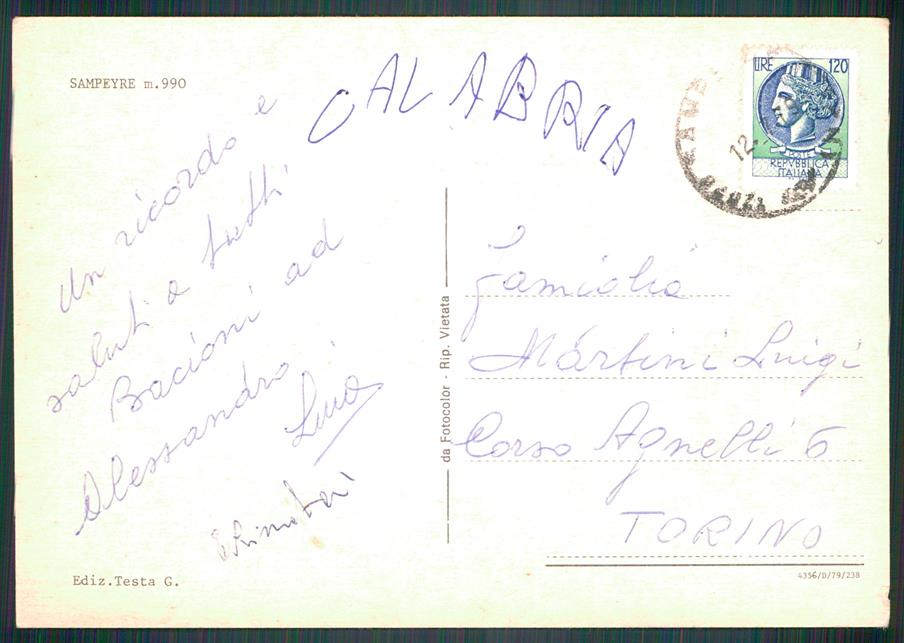 SAMPEYRE m.990
CALABRIA
LIRE 120
POSTE
REPVBBLICA
ITALIANA
12.
Un ricordo e
saluti a tutti
Bacioni ad
Alessandro
Lina
da Fotocolor - Rip. Vietata
Famiglia
Martini Luigi
Corso Agnelli 6
TORINO
Ediz.Testa G.
4356/D/79/238